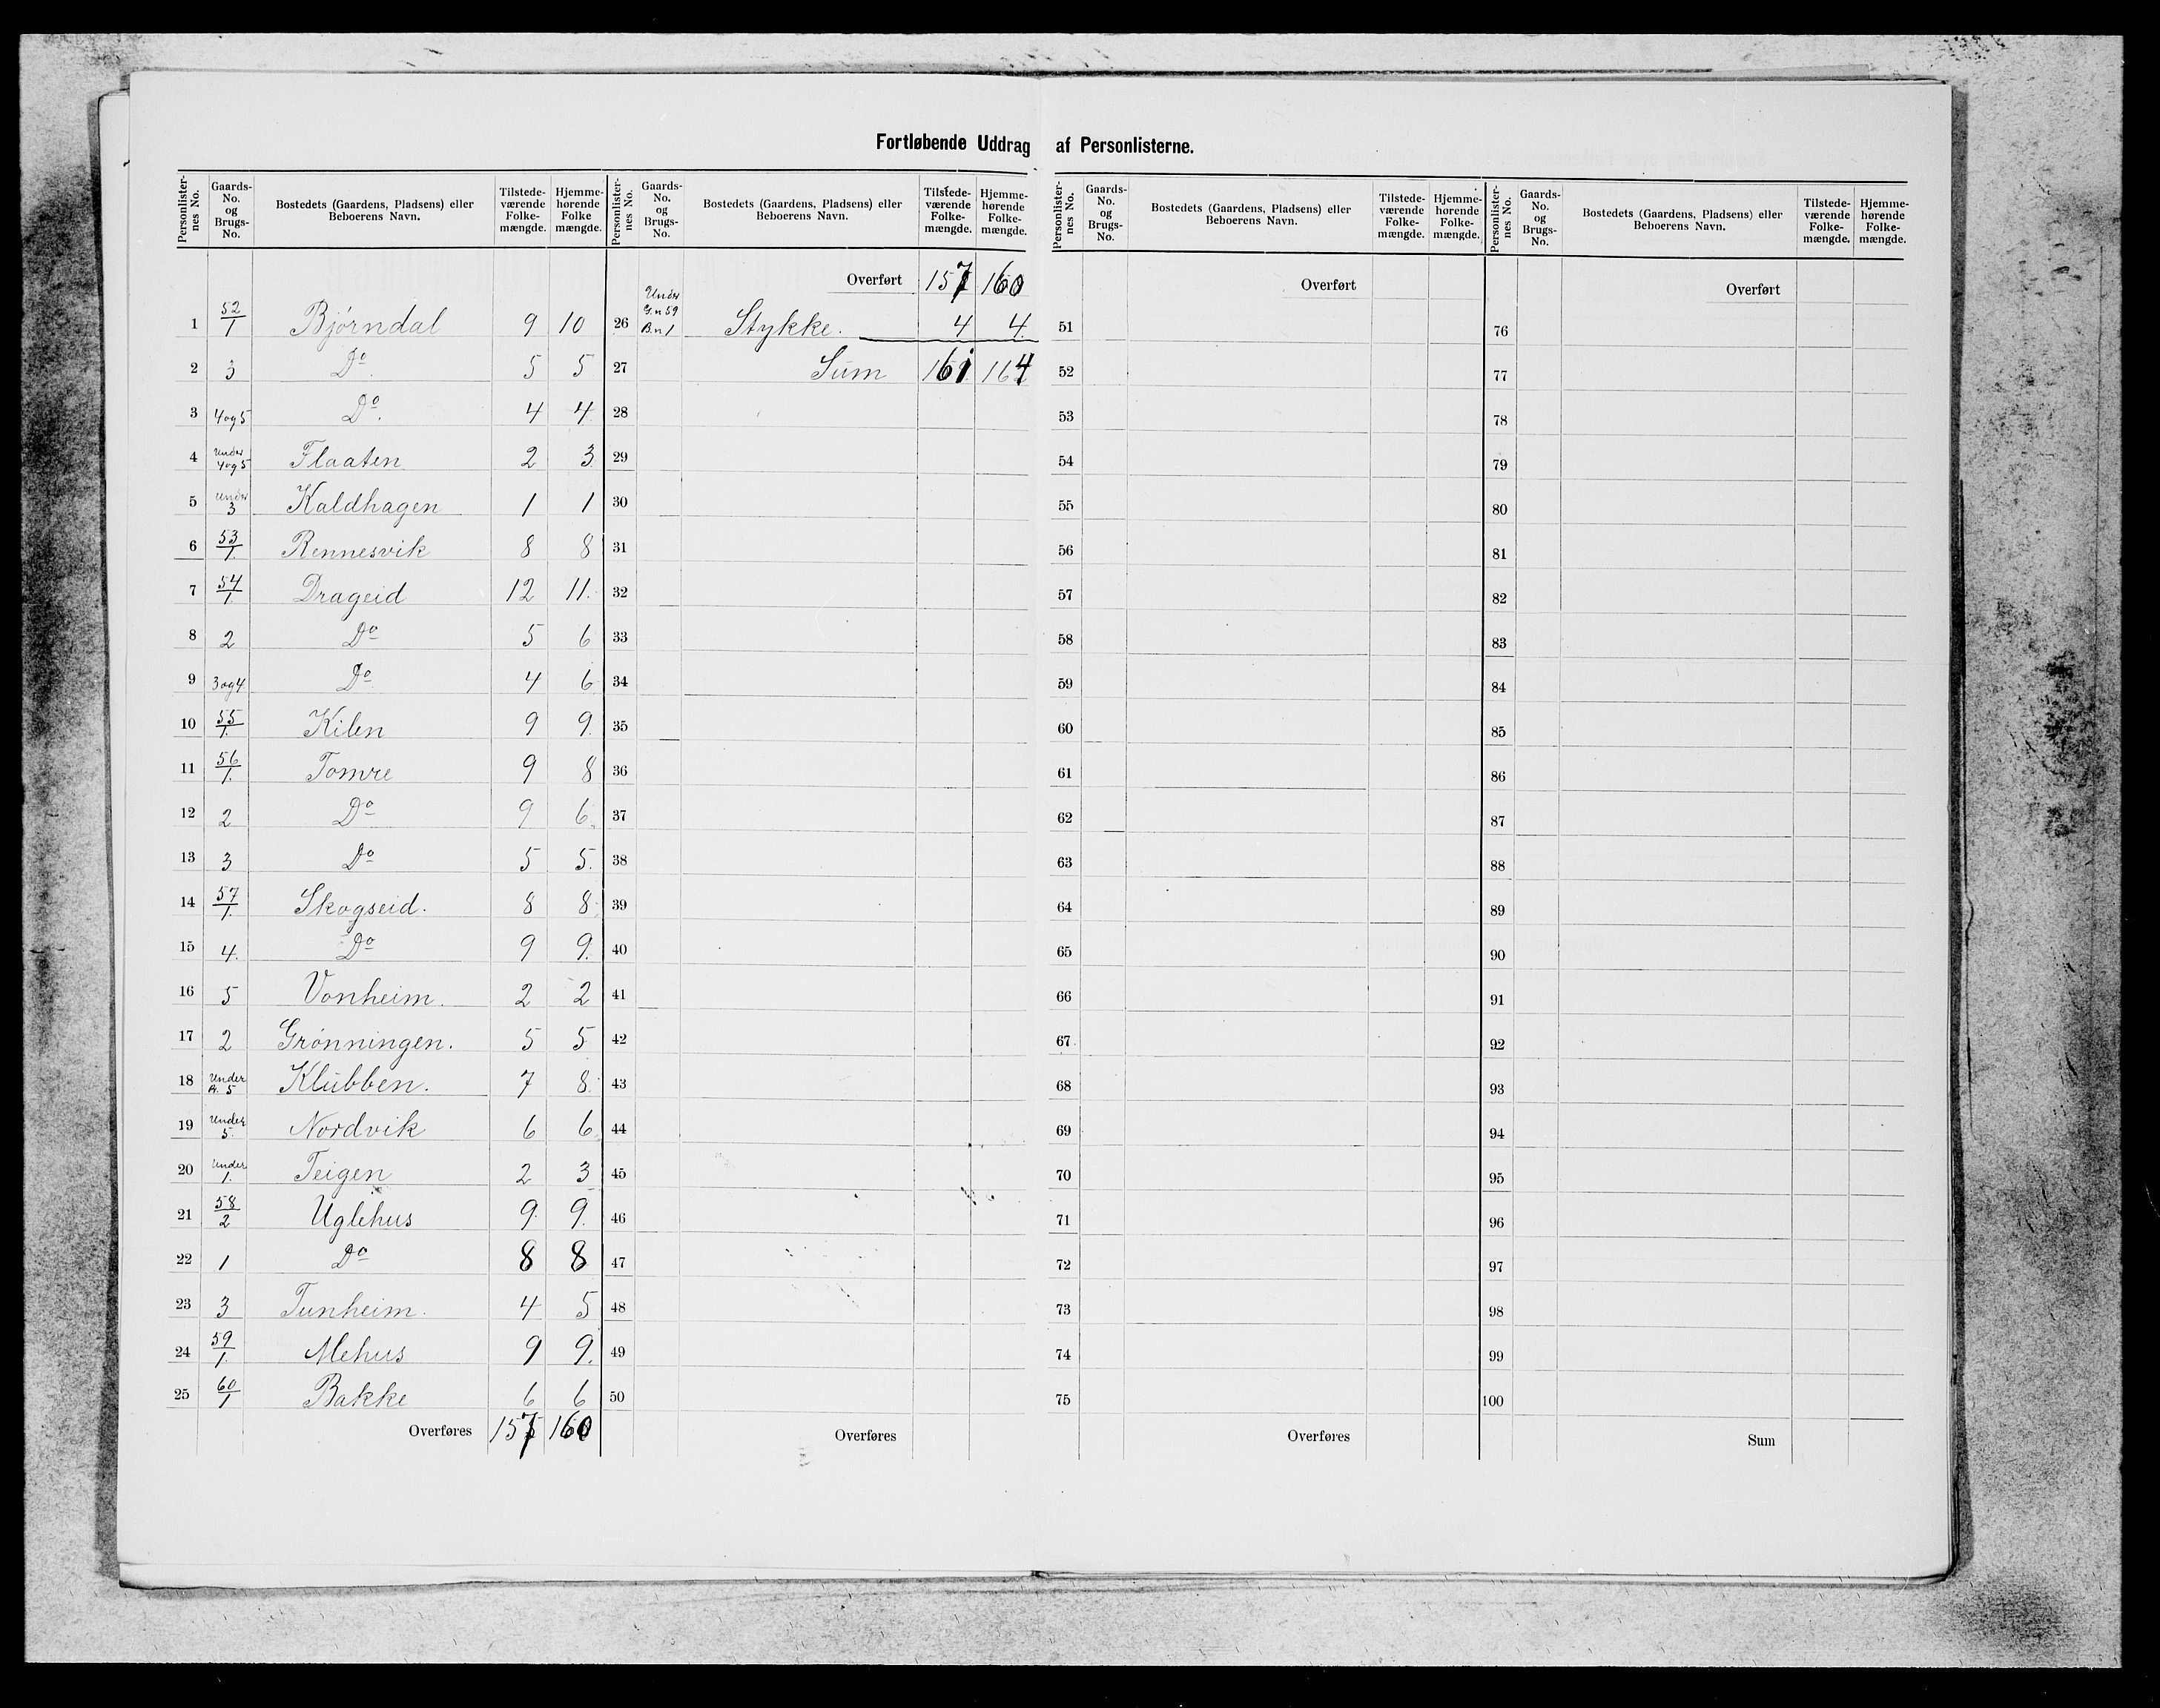 Fortløbende Uddrag af Personlisterne.
Personlister-nes No. | Gaards-No. og Brugs-No. | Bostedets (Gaardens, Pladsens) eller Beboerens Navn. | Tilstede-værende Folke-mængde. | Hjemme-hørende Folke mængde.
1 52/1 Bjørndal 9 10
2 3 Do. 5 5
3 4og5 Do. 4 4
4 Under 4og5 Flaaten 2 3
5 Under 3 Kaldhagen 1 1
6 53/1. Rennesvik 8 8
7 54/1. Drageid 12 11.
8 2 Do 5 6
9 3og4. Do 4 6
10 55/1. Kilen 9 9.
11 56/1. Tomre 9 8
12 2 Do 9 6.
13 3 Do 5 5.
14 57/1. Skogseid. 8 8
15 4. Do 9 9.
16 5 Vonheim. 2 2
17 2 Grønningen. 5 5
18 Under 5 Klubben. 7 8.
19 Under 5. Nordvik 6 6
20 Under 1. Teigen 2 3
21 58/2 Uglehus 9. 9.
22 1 Do 8 8
23 3 Tunheim. 4 5
24 59/1. Mehus 9 9.
25 60/1 Bakke 6 6
Overføres 157 160
Personlister-nes No. | Gaards-No. og Brugs-No. | Bostedets (Gaardens, Pladsens) eller Beboerens Navn. | Tilstede-værende Folke-mængde. | Hjemme-hørende Folke-mængde.
Overført 157 160
26 Under G.n 59 B.n 1 Stykke. 4 4.
27 Sum 161 164
28
29
30
31
32
33
34
35
36
37
38
39
40
41
42
43
44
45
46
47
48
49
50
Overføres
Personlister-nes No. | Gaards-No. og Brugs-No. | Bostedets (Gaardens, Pladsens) eller Beboerens Navn. | Tilstede-værende Folke-mængde. | Hjemme-hørende Folke-mængde.
Overført
51
52
53
54
55
56
57
58
59
60
61
62
63
64
65
66
67
68
69
70
71
72
73
74
75
Overføres
Personlister-nes No. | Gaards-No. og Brugs-No. | Bostedets (Gaardens, Pladsens) eller Beboerens Navn. | Tilstede-værende Folke-mængde. | Hjemme-hørende Folke-mængde.
Overført
76
77
78
79
80
81
82
83
84
85
86
87
88
89
90
91
92
93
94
95
96
97
98
99
100
Sum